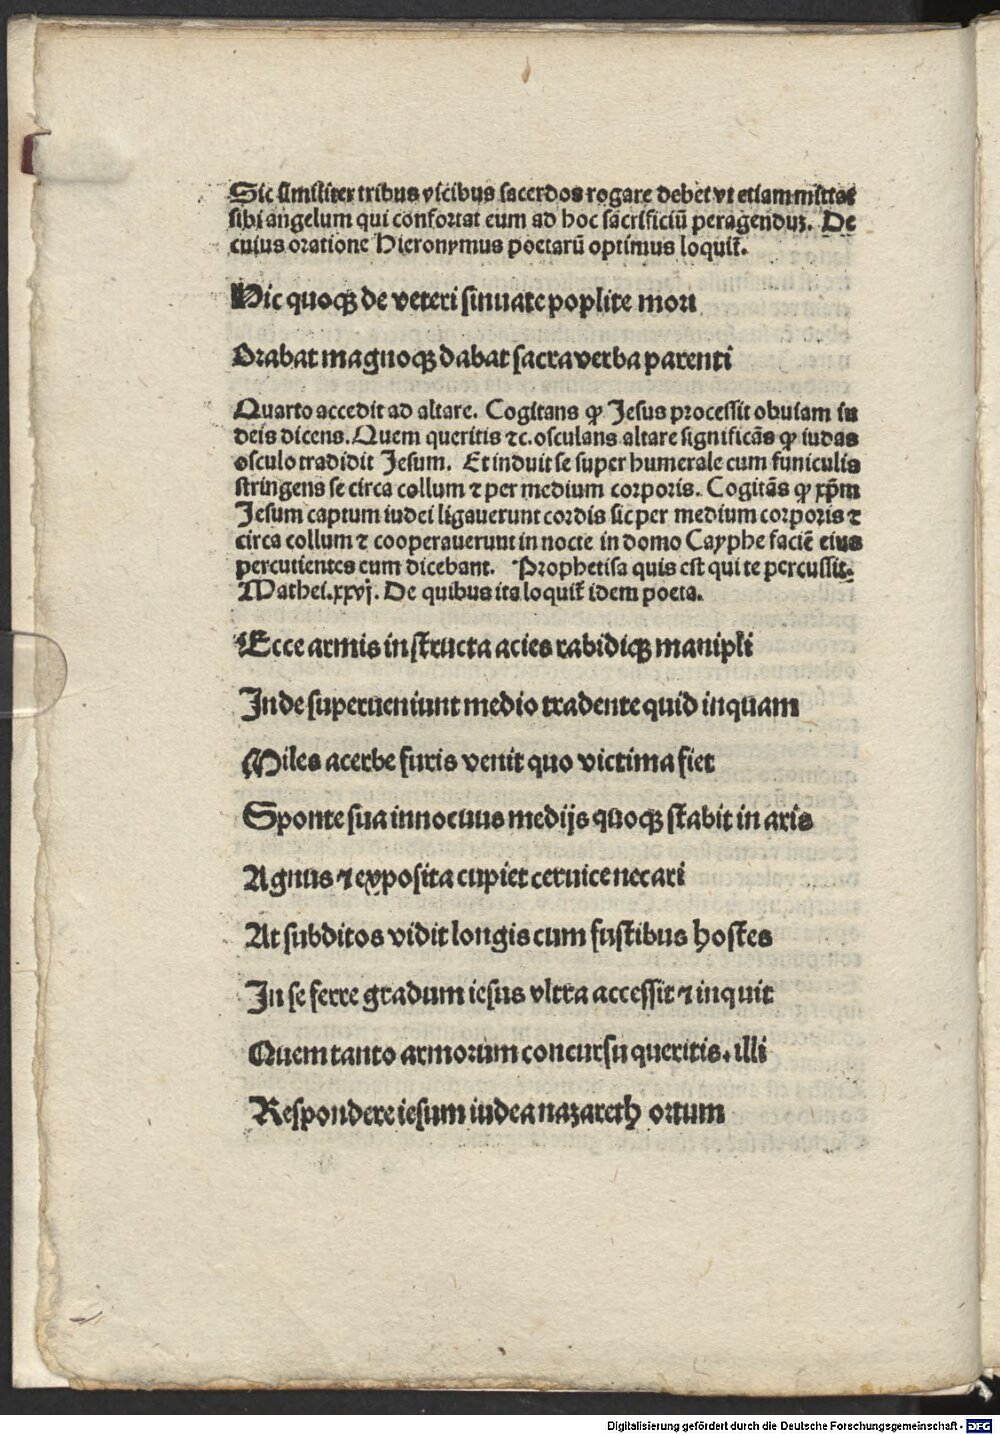 Sic similiter tribus vicibus sacerdos rogare debet vt etiam mittat
sibi angelum qui confortat eum ad hoc sacrificiū peragenduz. De
cuius oratione Hieronymus poetarū optimus loquit᷑.
Hic quoqꝫ de veteri sinuate poplite mori
Orabat magnoqꝫ dabat sacra verba parenti
Quarto accedit ad altare. Cogitans ꝙ Jesus processit obuiam iu
deis dicens. Quem queritis ⁊c. osculans altare significās ꝙ iudas
osculo tradidit Jesum. Et induit se super humerale cum funiculis
stringens se circa collum ⁊ per medium corporis. Cogitās ꝙ xp̄m
Jesum captum iudei ligauerunt cordis sic per medium corporis ⁊
circa collum ⁊ cooperauerunt in nocte in domo Cayphe faciē eius
percutientes eum dicebant. Prophetisa quis est qui te percussit.
Mathei. xxvj. De quibus ita loquit᷑ idem poeta.
Ecce armis instructa acies rabidiqꝫ manipli
Inde superueniunt medio tradente quid inquam
Miles acerbe furis venit quo victima fiet
Sponte sua innocuus medijs quoqꝫ stabit in aris
Agnus ⁊ exposita cupiet ceruice necari
At subditos vidit longis cum fustibus hostes
In se ferre gradum iesus vltra accessit ⁊ inquit
Quem tanto armorum concursu queritis. illi
Respondere iesum iudea nazareth ortum
Digitalisierung gefördert durch die Deutsche Forschungsgemeinschaft - DFG